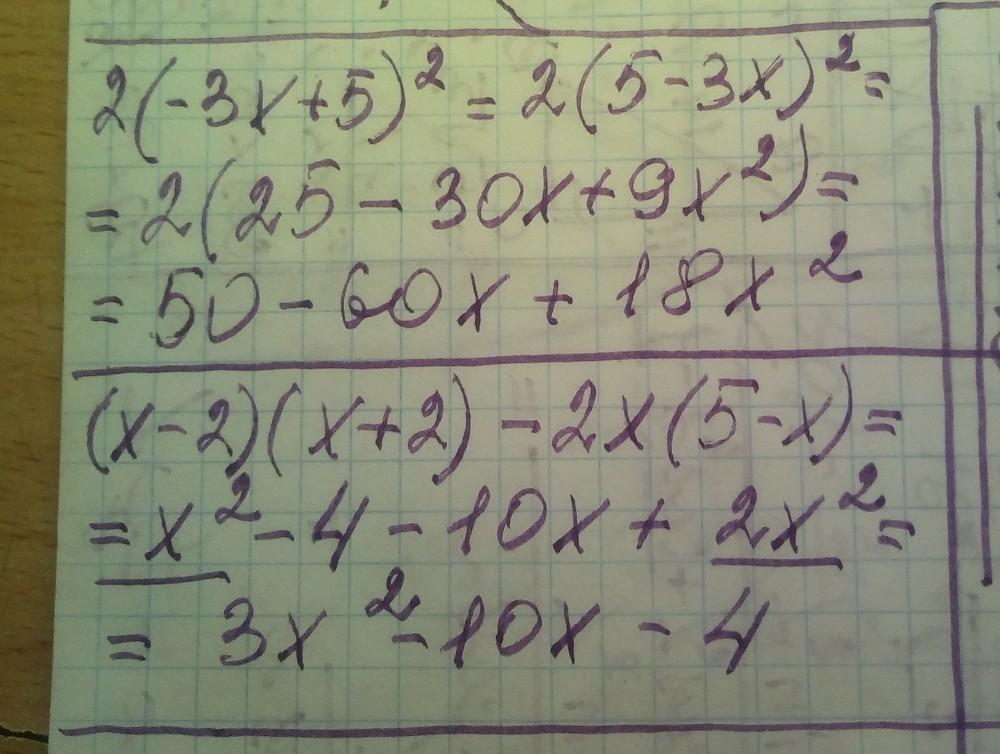 2(-3x+5)² = 2(5-3x)² =
= 2(25 - 30x + 9x²) =
= 50 - 60x + 18x²
(x-2)(x+2) - 2x(5-x) =
= x² - 4 - 10x + 2x² =
= 3x² - 10x - 4